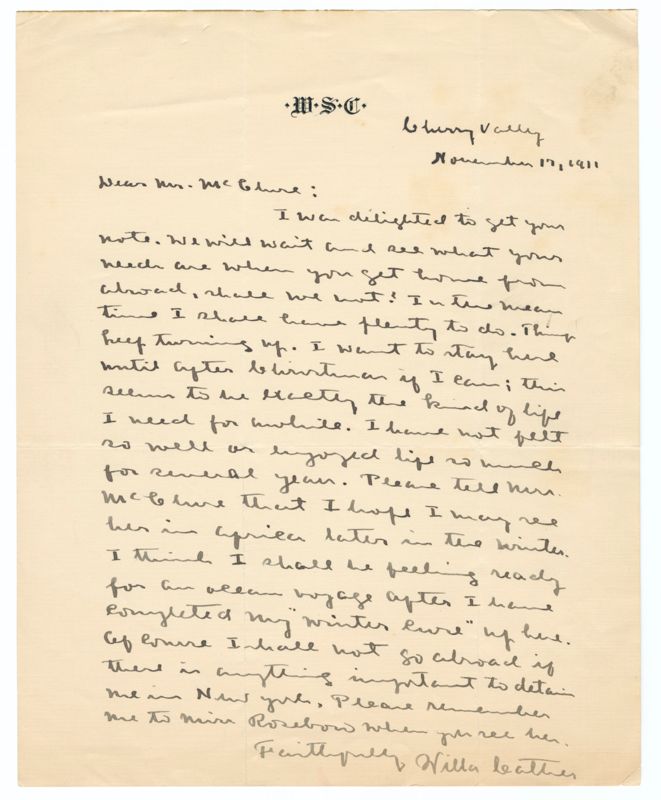 ·W·S·C·
Cherry Valley
November 17, 1911
Dear Mr. McClure:
I was delighted to get your
note. We will wait and see what your
needs are when you get home from
abroad, shall we not? In the mean
time I shall have plenty to do. Things
keep turning up. I want to stay here
until after Christmas if I can; this
seems to be exactly the kind of life
I need for awhile. I have not felt
so well or enjoyed life so much
for several years. Please tell Mrs.
McClure that I hope I may see
her in Africa later in the winter.
I think I shall be feeling ready
for an ocean voyage after I have
completed my "winter cure" up here.
Of course I shall not go abroad if
there is anything important to detain
me in New York. Please remember
me to Miss Rosebow when you see her.
Faithfully Willa Cather